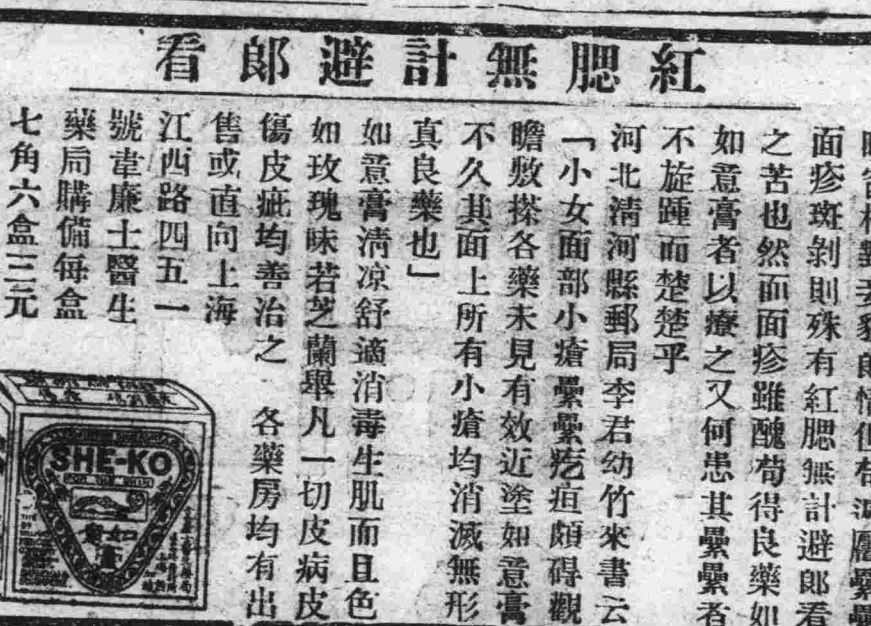 紅腮無計避郎看
相對 郎情但苟
面疹斑剝則殊有紅腮無計避郎看
之苦也然而面疹雖醜苟得良藥如
如意膏者以療之又何患其纍纍者
不旋踵而楚楚乎
河北清河縣郵局李君幼竹來書云
「小女面部小瘡纍纍疙疸頗碍觀
瞻敷搽各藥未見有效近塗如意膏
不久其面上所有小瘡均消滅無形
真良藥也」
如意膏清凉舒適消毒生肌而且色
如玫瑰味若芝蘭舉凡一切皮病皮
傷皮疵均善治之 各藥房均有出
售或直向上海
江西路四五一
號韋廉士醫生
藥局購備每盒
七角六盒三元
SHE-KO
FOR THE SKIN
如意膏